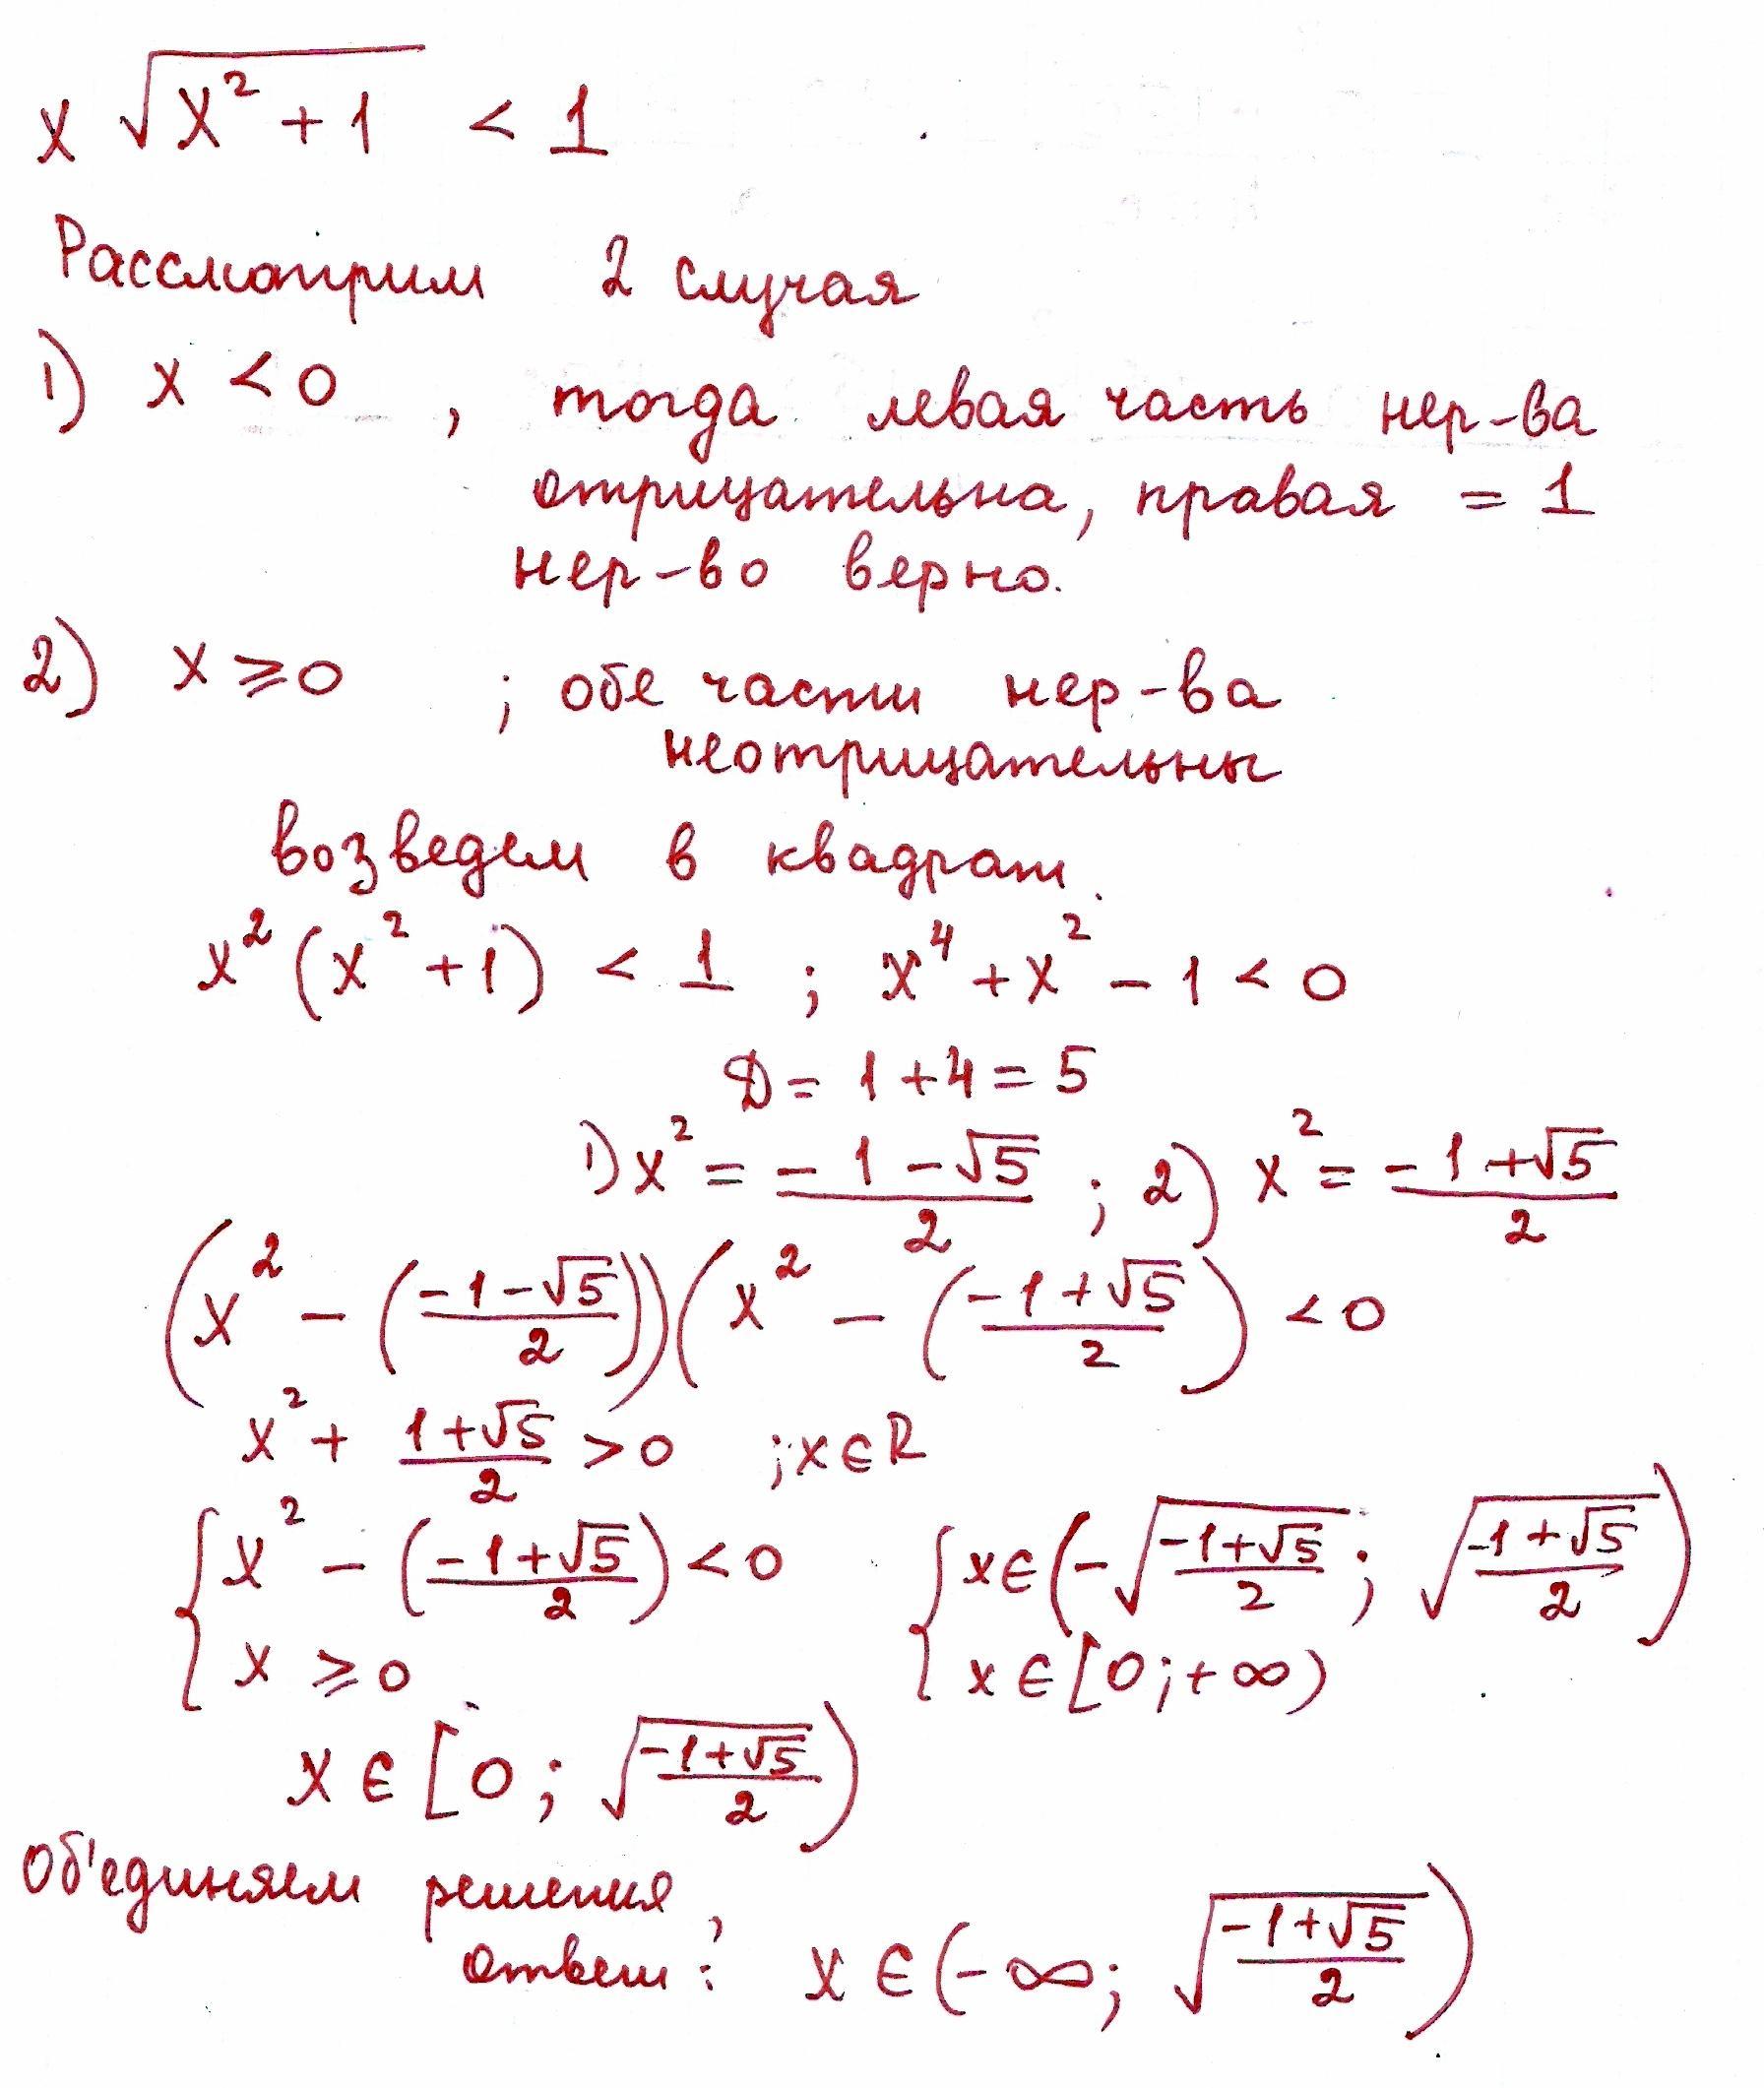 x √(x² + 1) < 1
Рассмотрим 2 случая
1) x < 0 , тогда левая часть нер-ва
отрицательна, правая = 1
нер-во верно.
2) x ≥ 0 ; обе части нер-ва
неотрицательны
возведем в квадрат.
x² (x² + 1) < 1 ; x⁴ + x² - 1 < 0
D = 1 + 4 = 5
1) x² = (-1 - √5)/2 ; 2) x² = (-1 + √5)/2
(x² - ((-1 - √5)/2))(x² - ((-1 + √5)/2) < 0
x² + (1 + √5)/2 > 0 ; x ∈ R
{ x² - ((-1 + √5)/2) < 0 { x ∈ (-√((-1 + √5)/2) ; √((-1 + √5)/2))
x ≥ 0 x ∈ [0 ; +∞)
x ∈ [0 ; √((-1 + √5)/2))
Об'единяем решения,
ответ: x ∈ (-∞; √((-1 + √5)/2))